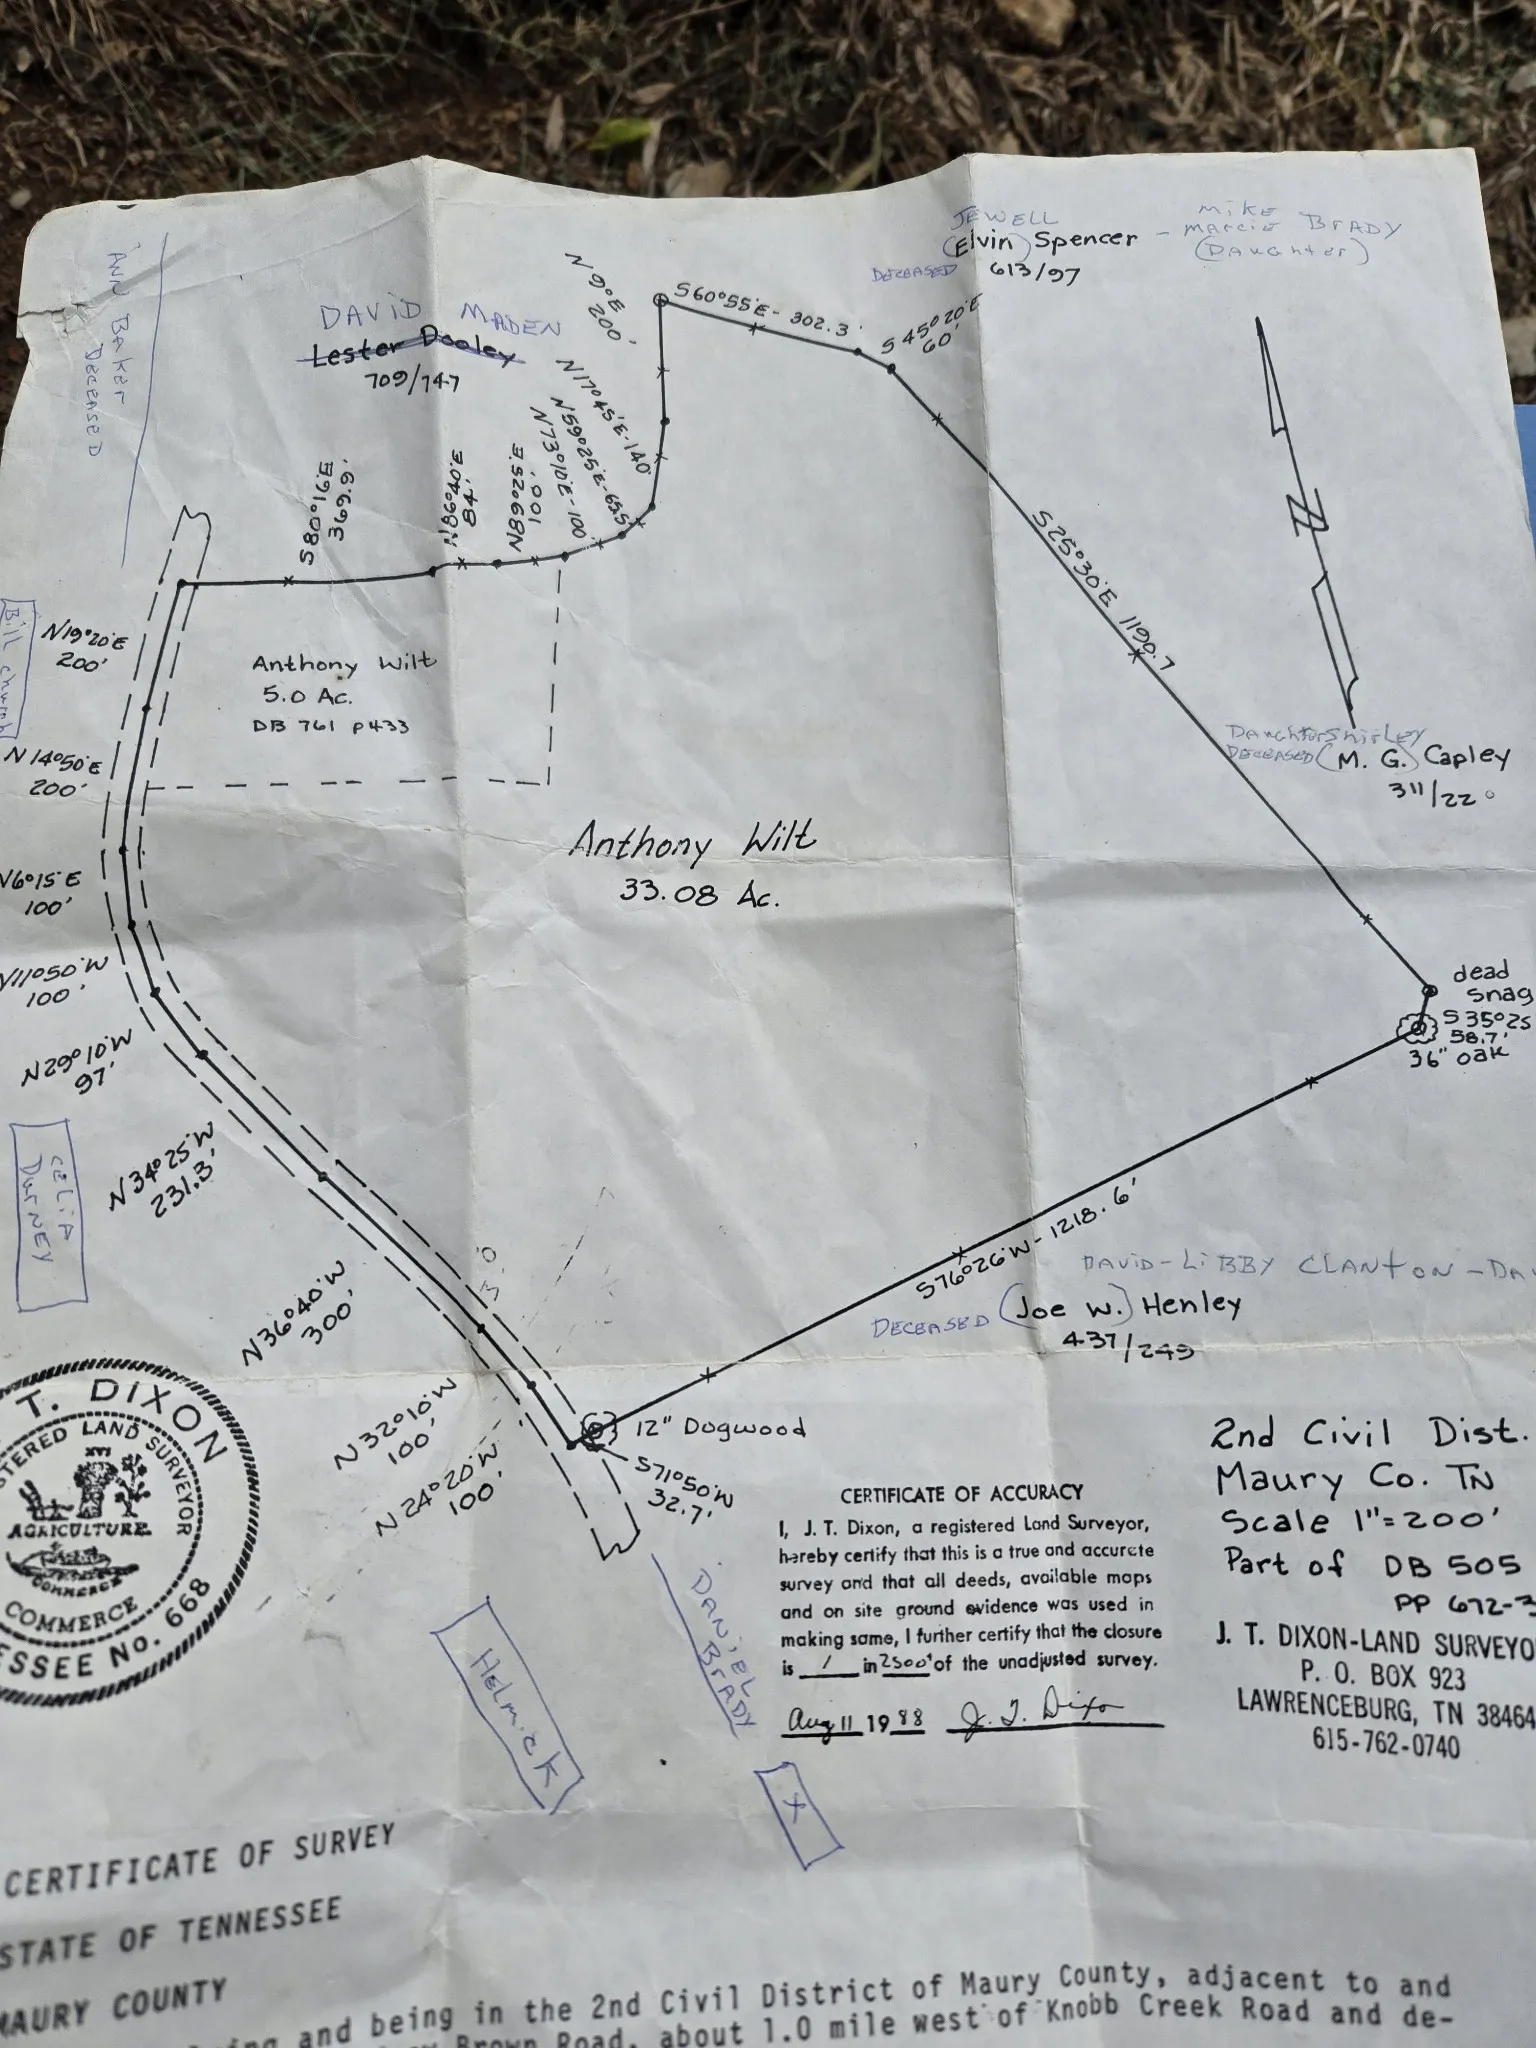 JEWELL
(Elvin) Spencer -
DECEASED 613/97
MIKE
MARCIE BRADY
(DAUGHTER)
ANN BAKER
DECEASED
DAVID MADEN
Lester Dooley
709/747
N 9° E
200'
S60°55'E - 302.3'
S 45°20'E
60'
N17°45'E-140'
N59°25'E-65.5'
N73°10'E-100'
N89°25'E
100'
N86°40'E
84'
S80°16'E
369.9'
S25°30'E 1190.7
Bill chumb
N19°20'E
200'
Anthony Wilt
5.0 Ac.
DB 761 P433
N 14°50'E
200'
DAUGHTER SHIRLEY
DECEASED (M. G.) Capley
311/22
Anthony Wilt
33.08 Ac.
N6°15'E
100'
N11°50'W
100'
dead
snag
S35°25
58.7'
36" oak
N29°10'W
97'
CELIA
DURNEY
N34°25'W
231.3'
3.0
S76°26'W - 1218.6'
DAVID-LIBBY CLANTON-DA
DECEASED (Joe W.) Henley
437/249
N36°40'W
300'
N 32°10'W
100'
N 24°20'W
100'
12" Dogwood
S71°50'W
32.7'
T. DIXON
STERED LAND SURVEYOR
XVI
AGRICULTURE
COMMERCE
COMMERCE
ESSEE No. 668
DANIEL
BRADY
HELMICK
X
2nd Civil Dist.
Maury Co. TN
Scale 1"=200'
Part of DB 505
PP 672-3
J. T. DIXON-LAND SURVEYO
P. O. BOX 923
LAWRENCEBURG, TN 38464
615-762-0740
CERTIFICATE OF ACCURACY
I, J. T. Dixon, a registered Land Surveyor,
hereby certify that this is a true and accurate
survey and that all deeds, available maps
and on site ground evidence was used in
making same, I further certify that the closure
is 1 in 2500' of the unadjusted survey.
Aug 11 1988 J. T. Dixon
CERTIFICATE OF SURVEY
STATE OF TENNESSEE
MAURY COUNTY
and being in the 2nd Civil District of Maury County, adjacent to and
Brown Road, about 1.0 mile west of Knobb Creek Road and de-